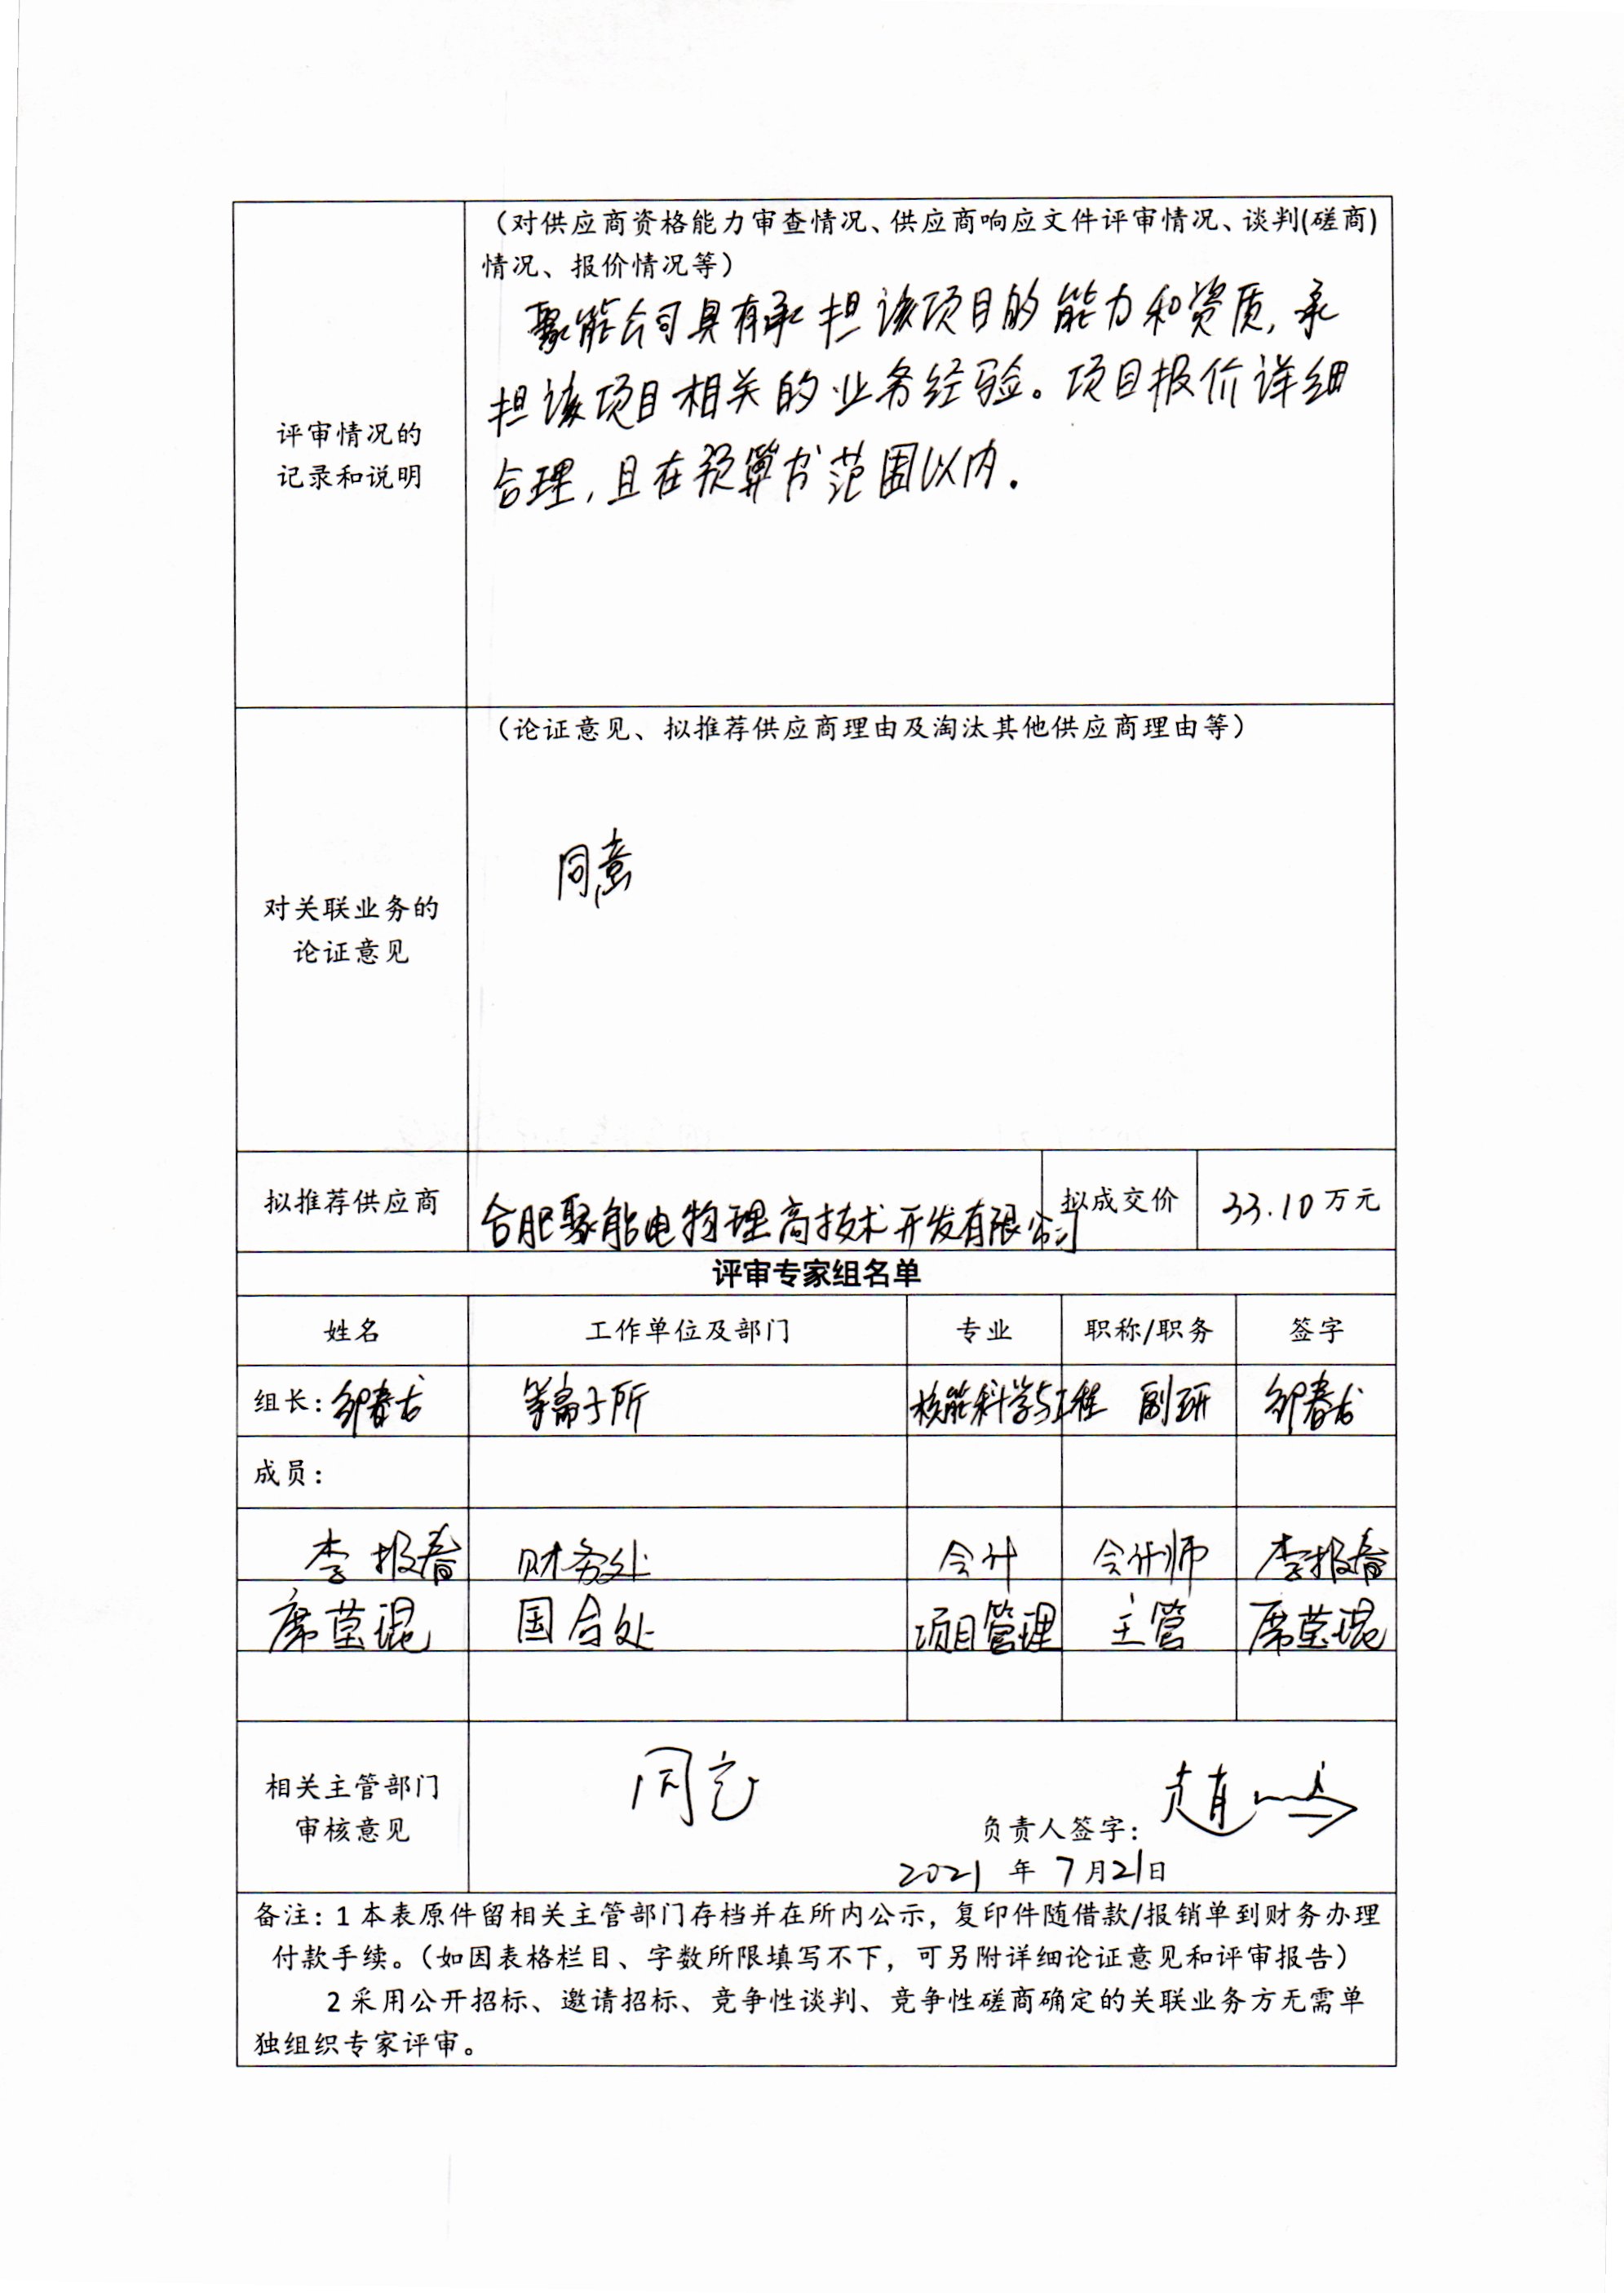 (对供应商资格能力审查情况、供应商响应文件评审情况、谈判(磋商)
情况、报价情况等)
评审情况的
记录和说明
聚能公司具有承担该项目的能力和资质,承
担该项目相关的业务经验。项目报价详细
合理,且在预算书范围以内.
(论证意见、拟推荐供应商理由及淘汰其他供应商理由等)
对关联业务的
论证意见
同意
拟推荐供应商 合肥聚能电物理高技术开发有限公司 拟成交价 33.10万元
评审专家组名单
姓名 工作单位及部门 专业 职称/职务 签字
组长: 邹春龙 等离子所 核能科学与工程 副研 邹春龙
成员:
李报春 财务处 会计 会计师 李报春
席莹琨 国合处 项目管理 主管 席莹琨
相关主管部门
审核意见
同意
负责人签字: 赵
2021 年 7 月21日
备注:1 本表原件留相关主管部门存档并在所内公示,复印件随借款/报销单到财务办理
付款手续。(如因表格栏目、字数所限填写不下,可另附详细论证意见和评审报告)
2 采用公开招标、邀请招标、竞争性谈判、竞争性磋商确定的关联业务方无需单
独组织专家评审。